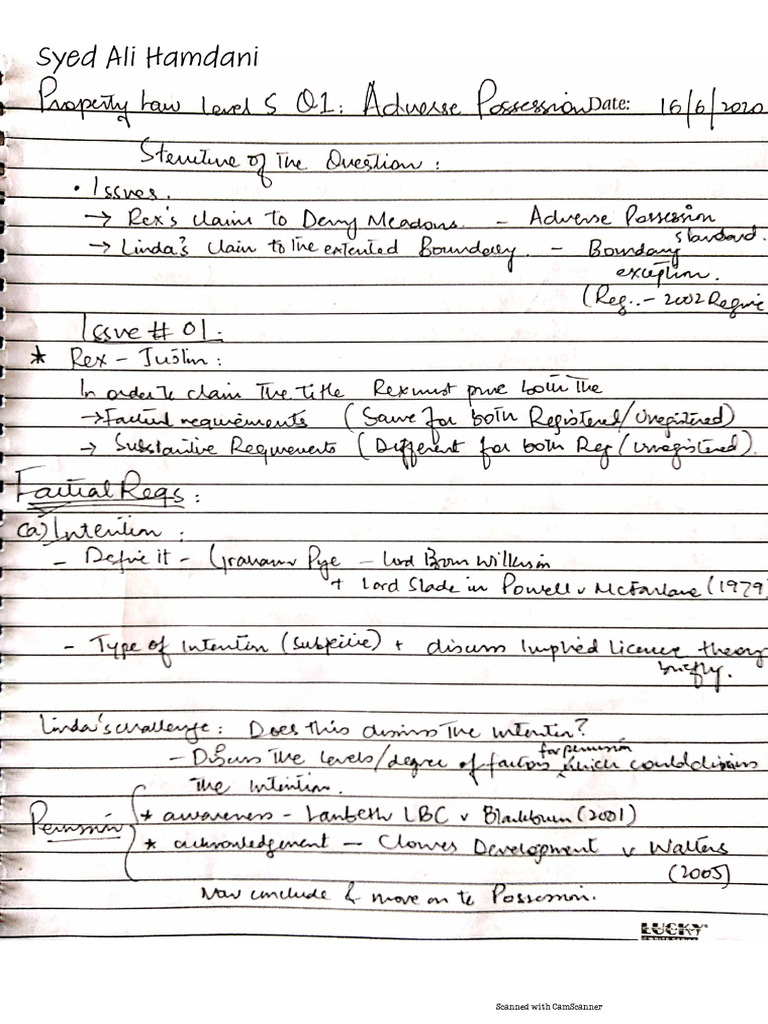 Syed Ali Hamdani
Property Law Level 5 Q1: Adverse Possession Date: 16/6/2020
Structure of the Question:
• Issues.
→ Rex's claim to Demy Meadows. - Adverse Possession standard.
→ Linda's claim to the extented Boundary. - Boundary exception.
(Reg.. - 2002 Regime
Issue # 01:
* Rex - Justin:
In order to claim the title Rex must prove both the
→ Factual requirements (Same for both Registered/Unregistered)
→ Substantive Requirements (Different for both Reg/Unregistered).
Factual Reqs:
(a) Intention:
- Define it - Graham v Pye - Lord Brown Wilkinson
+ Lord Slade in Powell v McFarlane (1979)
- Type of Intention (subjective) + discuss Implied Licence theory briefly.
Linda's challenge: Does this dismiss the intention?
- Discuss the levels/degree of factors for permission which could dismiss
the intention.
Permission
* awareness - Lambeth LBC v Blackburn (2001)
* acknowledgement - Clowes Development v Walters
(2005)
Now conclude & move on to Possession.
LUCKY
Scanned with CamScanner